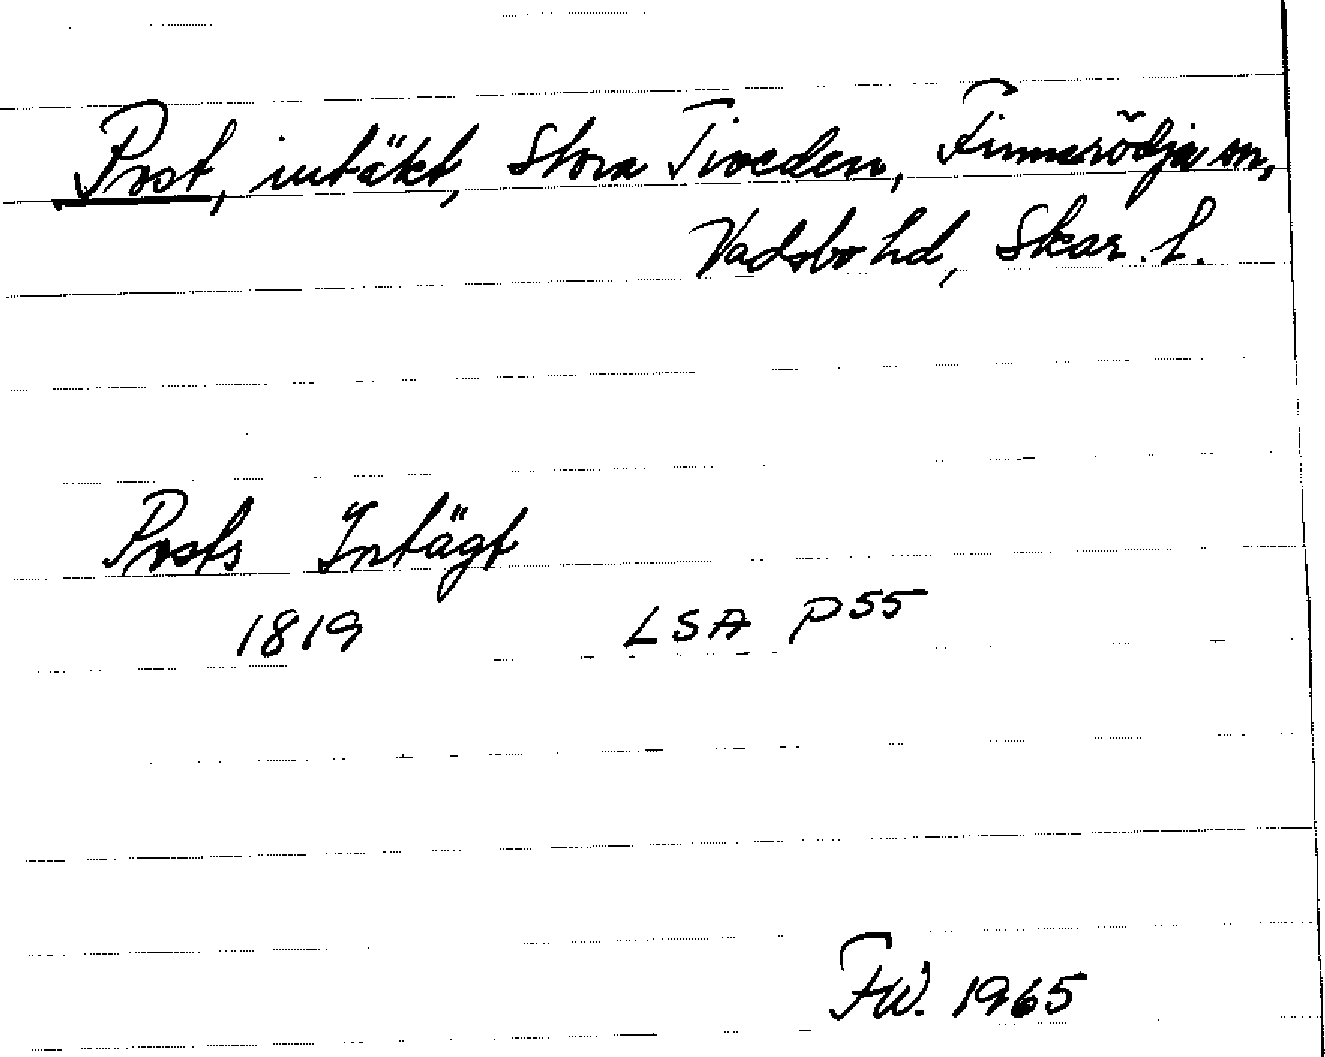 Post, intäkt, Stora Tiveden, Finnerödja sn,
Vadsbo hd, Skar. l.
Posts Intägt
1819 LSA P55
FW. 1965